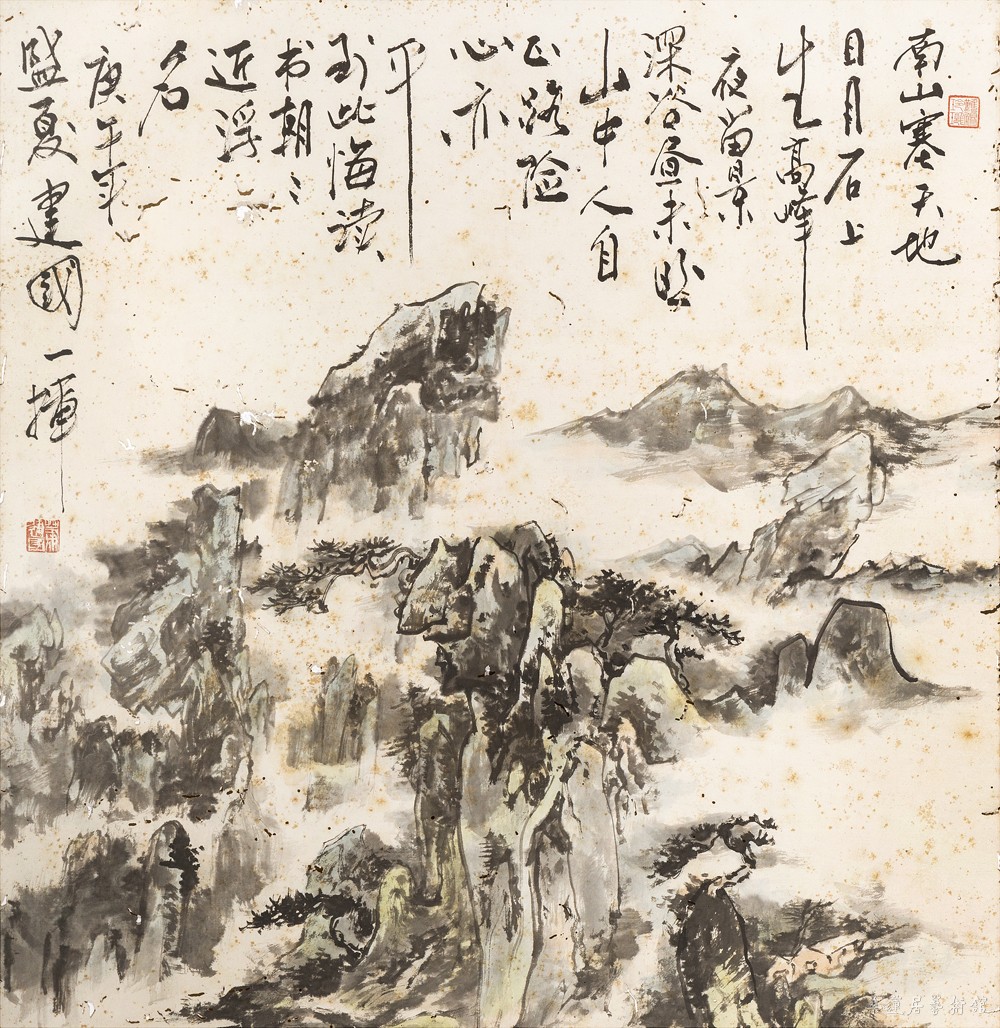 南山塞天地
日月石上
生高峰
夜留景
深谷昼未明
山中人自
正路险
心亦
平
到此悔读
书朝々
近浮
名
庚午年
盛夏建國一揮